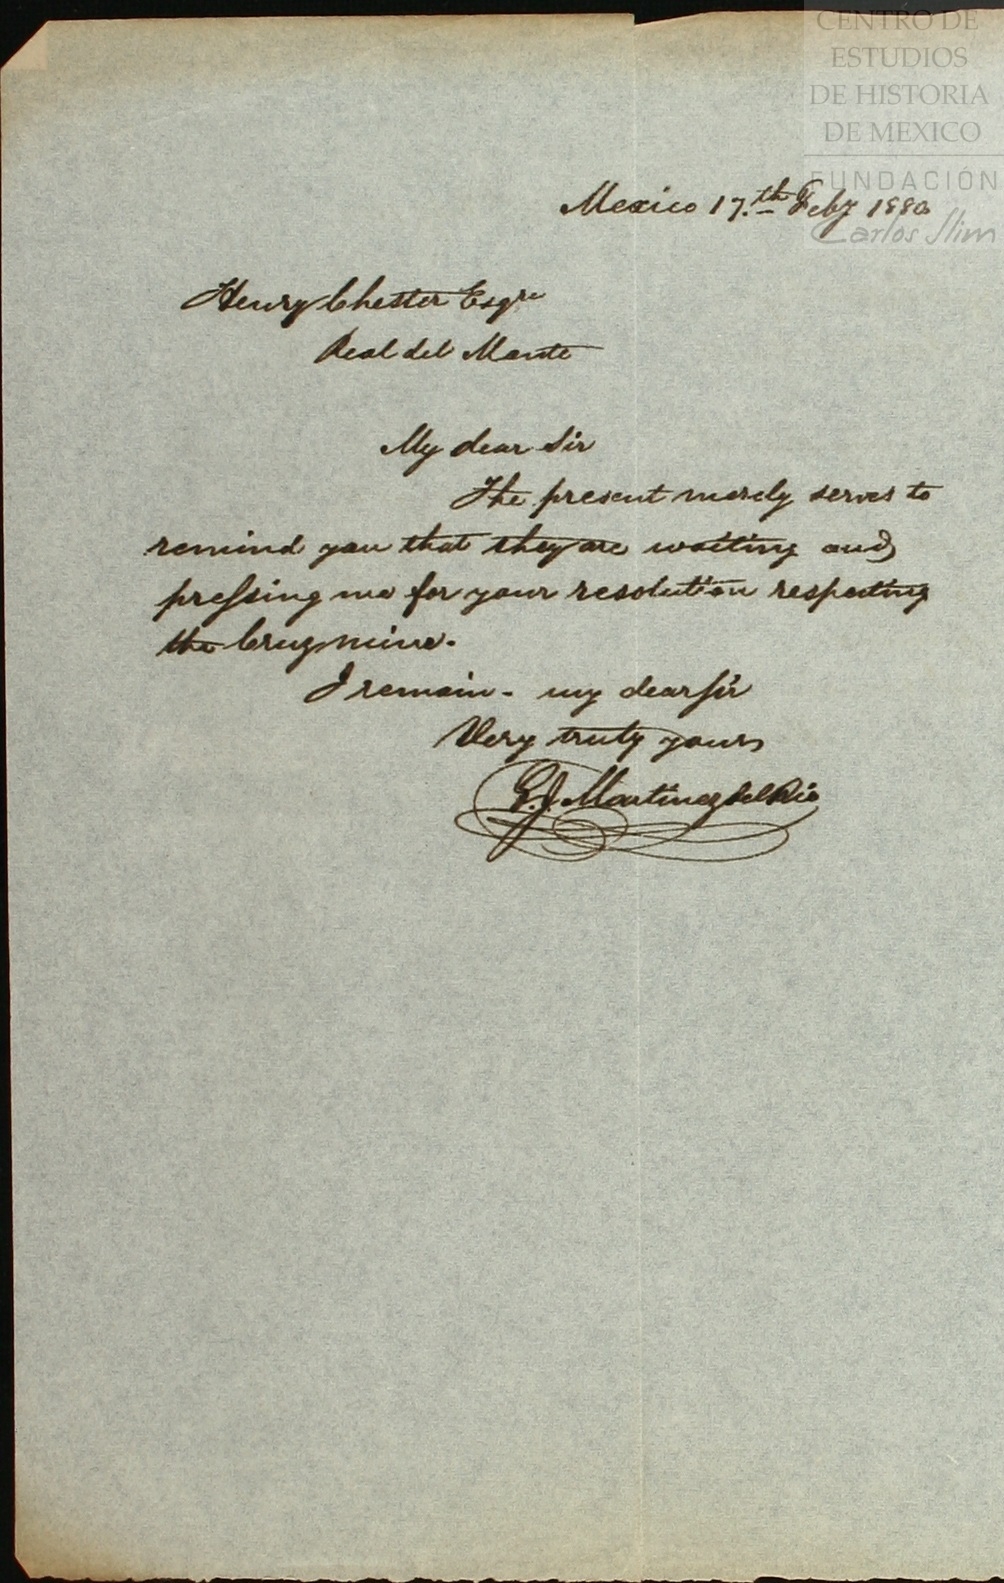 CENTRO DE
ESTUDIOS
DE HISTORIA
DE MEXICO
FUNDACIÓN
Carlos Slim
Mexico 17.th Feby 1880
Henry Chester Esqre
Real del Monte
My dear Sir
The present merely serves to
remind you that they are waiting and
preſsing me for your resolution respecting
the Cruz mine.
I remain - my dear ſir
Very truly yours
G. J. Martinez del Rio